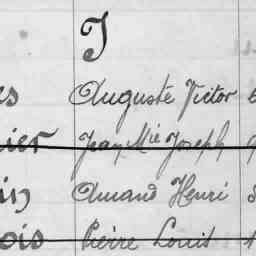 J
Auguste Victor
Jean Mie Joseph
Amand Henri
ois Pierre Louis